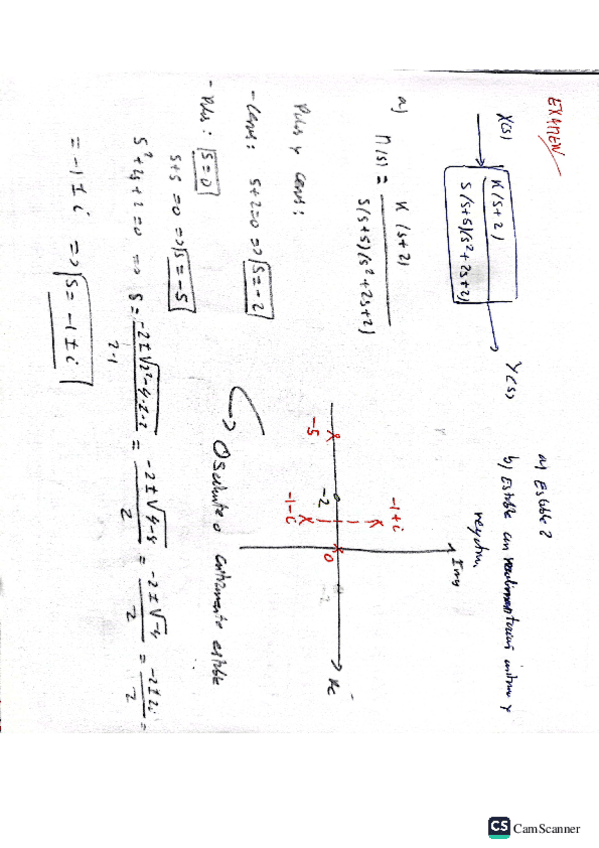 EXAMEN
X(s)
K(s+2)
S(s+5)(s²+2s+2)
Y(s)
a) Estable?
b) Estable con realimentación unitaria y
negativa
a) M(s) = K(s+2)
S(s+5)(s²+2s+2)
Polos y ceros:
-Ceros: s+2=0 => s=-2
-Polos: s=0
s+5=0 => s=-5
s²+2s+2=0 => s= -2±√2²-4·1·2 / 2·1 = -2±√4-8 / 2 = -2±√-4 / 2 = -2±2i / 2 =
= -1±i => s=-1±i
Img
Re
-1+i
-1-i
-5
-2
0
-2
Oscilante o críticamente estable
CS CamScanner